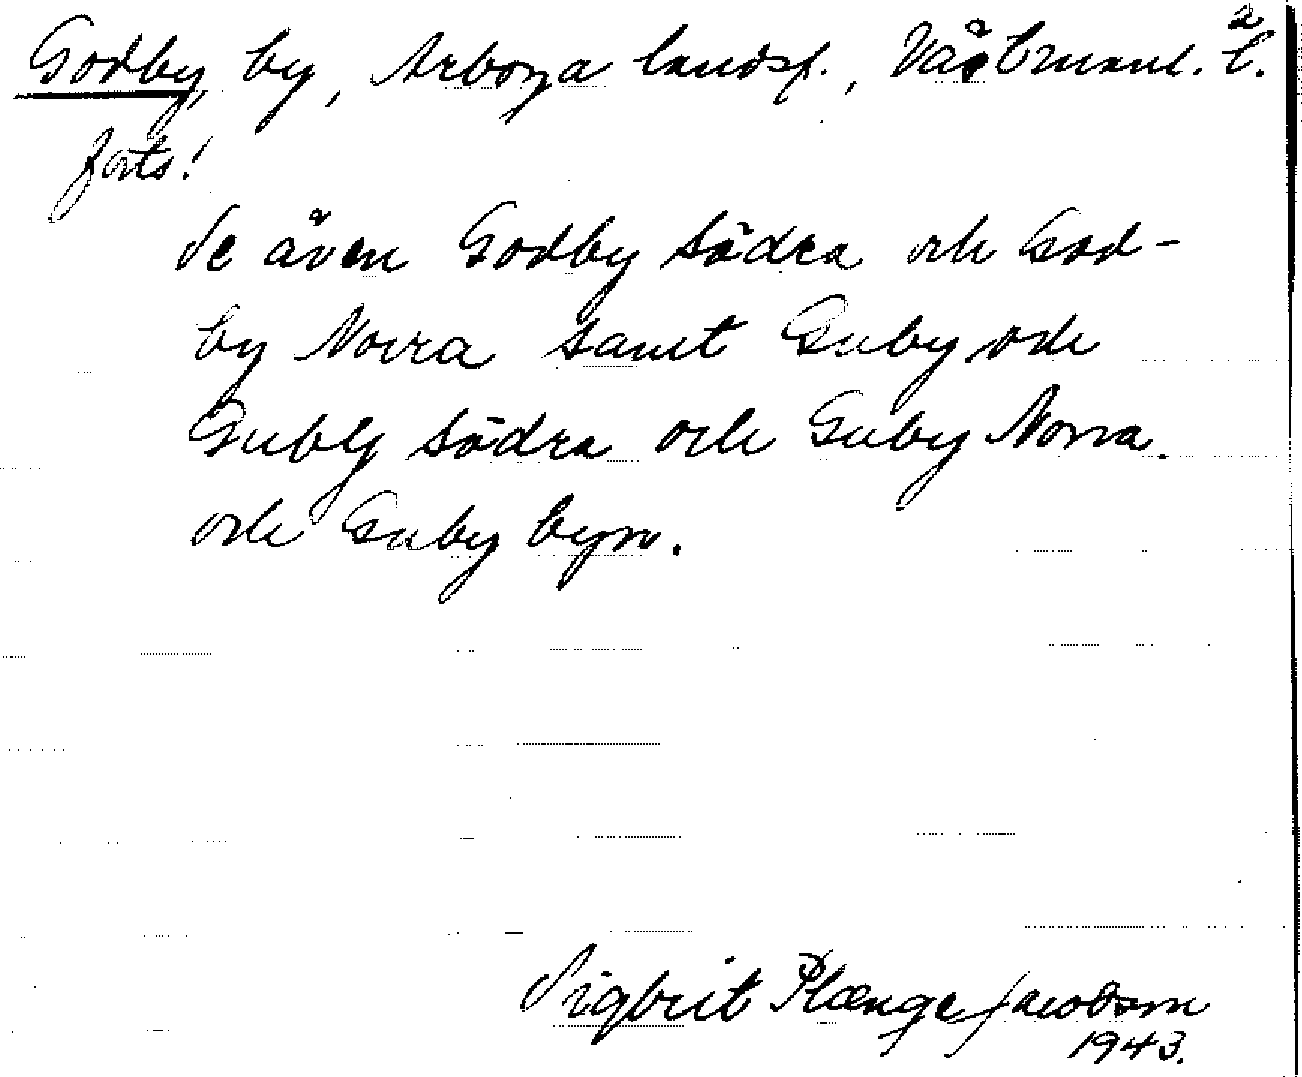 Godby, by, Arboga landsf., Västmanl. l. 2
forts!
Se även Godby Södra och God-
by Norra samt Guby och
Guby Södra och Guby Norra.
och Guby byn.
Sigbrit Plænge Jacobson
1943.